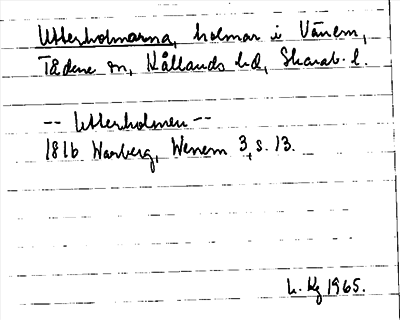 Utterholmarna, holmar i Vänern,
Tådene sn, Kållands hd, Skarab. l.
-- Utterholmen --
1816 Warberg, Wenern 3, s. 13.
1965.